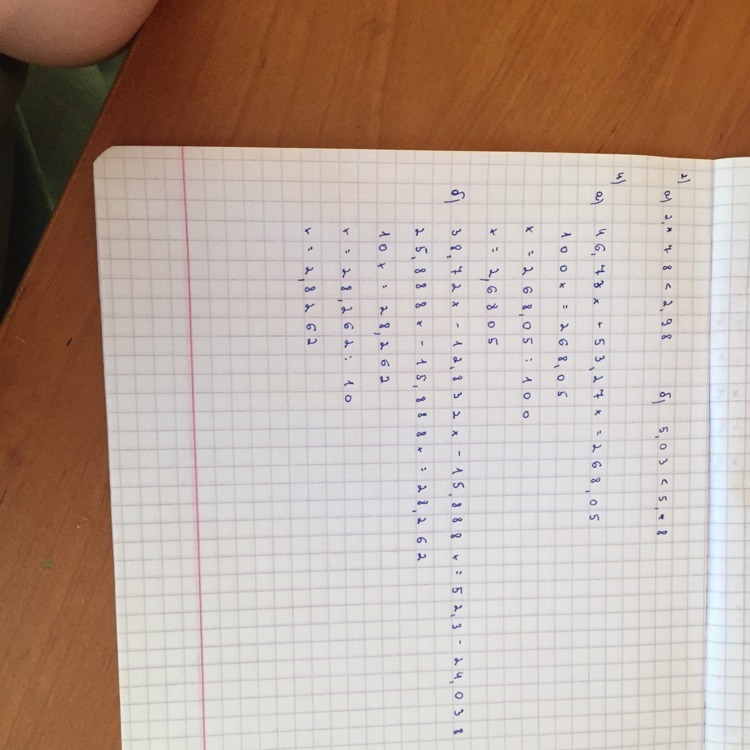 2)
а) 2,*78 < 2,98 б) 5,03 < 5,*8
4)
а) 46,73x + 53,27x = 268,05
100x = 268,05
x = 268,05 : 100
x = 2,6805
б) 38,72x - 12,832x - 15,888x = 52,3 - 24,038
25,888x - 15,888x = 28,262
10x = 28,262
x = 28,262 : 10
x = 2,8262